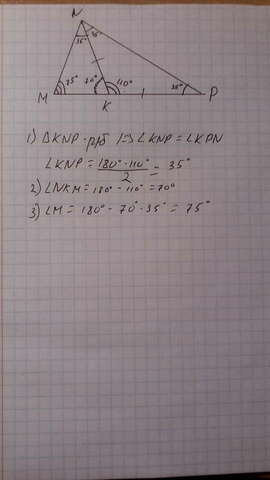 N
35° 35°
75° 70° 110° 35°
M K P
1) ΔKNP - р/б |⇒ ∠KNP = ∠KPN
∠KNP = (180° - 110°)/2 = 35°
2) ∠NKM = 180° - 110° = 70°
3) ∠M = 180° - 70° - 35° = 75°